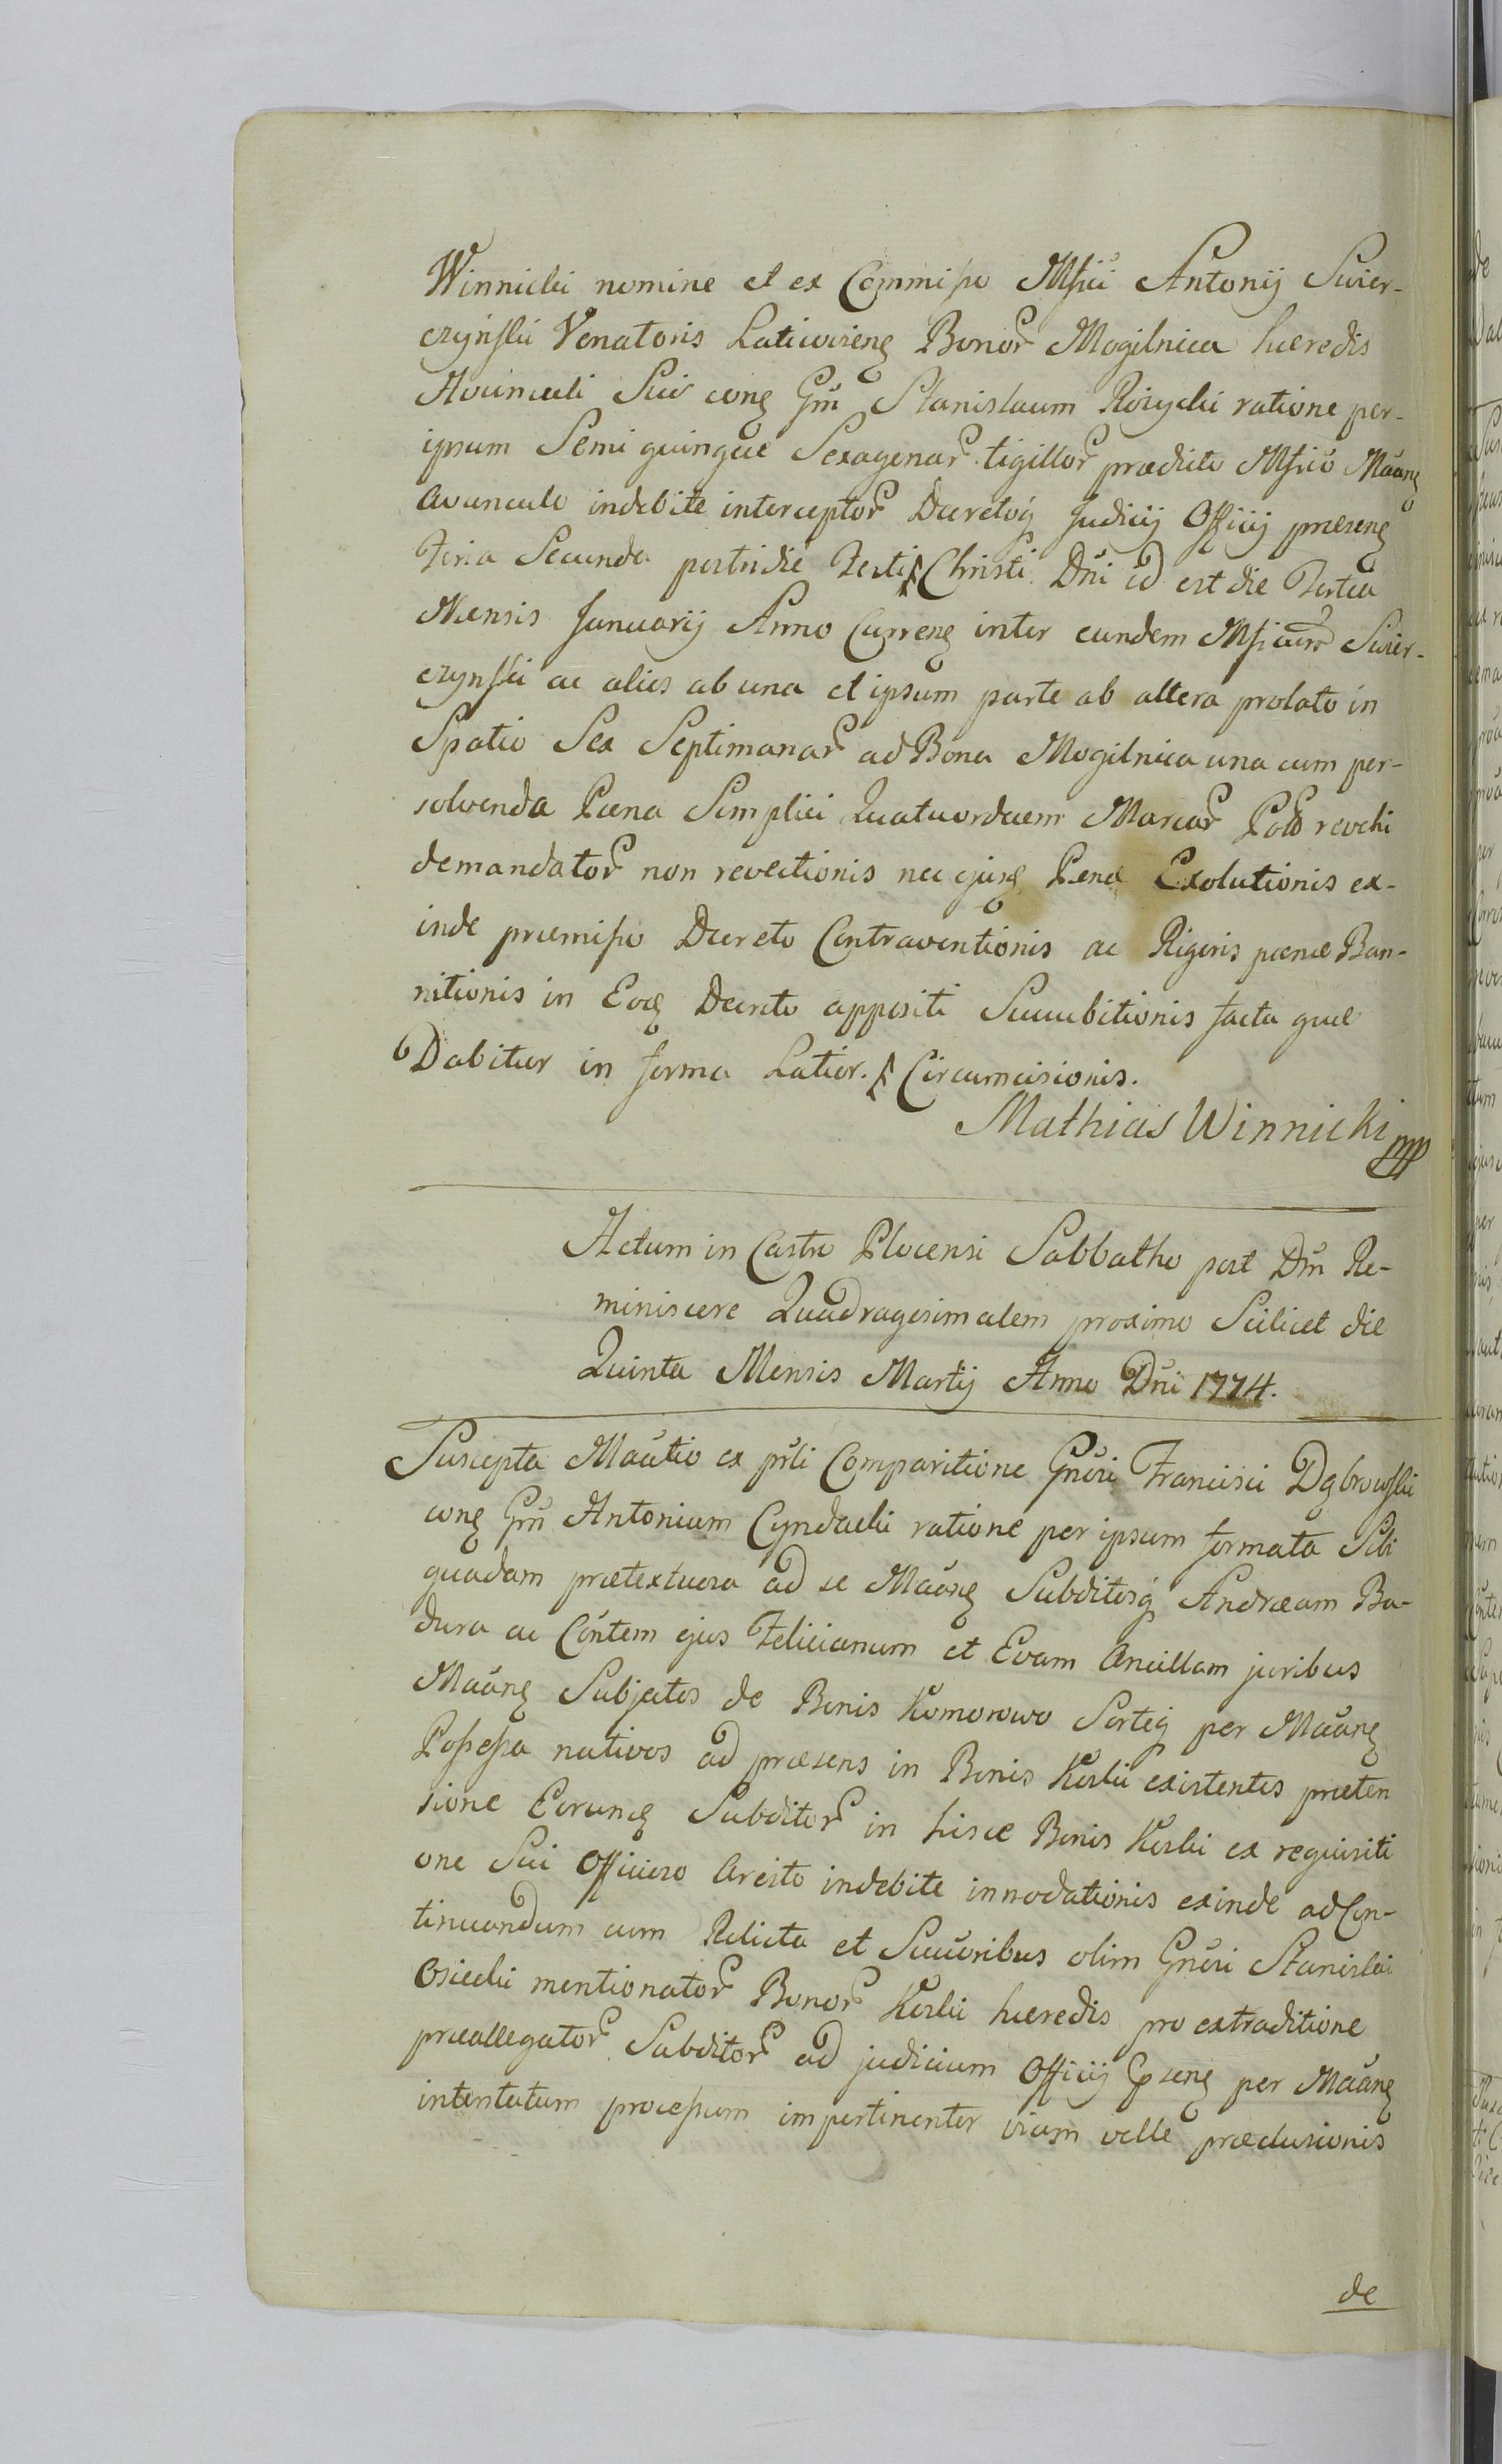 Winnicki nomine et ex Commisso Mfici Antonij Swier-
czyński Venatoris Laticoviens Bonor Mogilnica haeredis
Avunculi Sui cons Gm Stanislaum Rożycki ratione per-
ipsum Semi quinque Sexagenar tigillor praedicto Mfico Mäans
avunculo indebite interceptor Decretoq Judicij Officij praesens
Feria Secunda postridie Festi Christi Dni id est die Tertia
Mensis Januarij Anno Currens inter eundem Mficum Swier-
czynski ac alios ab una et ipsum parte ab altera prolato in
Spatio Sex Septimanar ad Bona Mogilnica una cum per-
solvenda Paena Simplici Quatuordecem Marcar Pol revehi
demandator non revectionis nec ejusq Penae Exolutionis ex-
inde praemisso Decreto Contraventionis ac Rigoris paenae Ban-
nitionis in Eoq Decreto appositi Succubitionis facta quae
Dabitur in forma Latior. Circumcisionis.
Mathias Winnicki mpp
Actum in Castro Plocensi Sabbatho post Dm Re-
miniscere Quadragesimalem proximo Scilicet die
Quinta Mensis Martij Anno Dni 1774.
Suscepta Mäatio ex prli Comparitione Gnosi Francisci Dąbrowski
cons Gm Antonium Cyndacki ratione per ipsum formata Sibi
quadam praetextuosa ad se Mäans Subditosq Andraeam Ba-
dura ac Contem ejus Felicianum et Evam Ancillam juribus
Mäans Subjectos de Bonis Komorowo Sorteq per Mäans
Possessa nativos ad praesens in Bonis Koski existentes praeten
sione Eorunq Subditor in hisce Bonis Koski ex requisiti
one Sui Officioso Aresto indebite innodationis exinde ad Con-
tinuandum cum Relicta et Succoribus olim Gnosi Stanislai
Osiecki mentionator Bonor Koski haeredis pro extraditione
praeallegator Subditor ad judicium Officij psens per Mäans
intentatum processum impertinenter viam velle praeclusionis
de